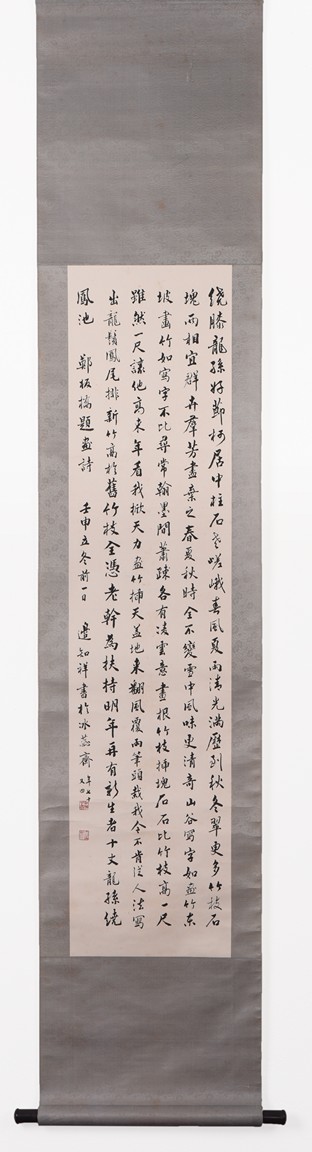 绕膝龍孫好節柯居中柱石老嵯峨春風夏雨清光滿歷到秋冬翠更多竹枝石
塊兩相宜群卉羣芳盡棄之春夏秋時全不變雪中風味更清奇山谷寫字如画竹東
坡畫竹如寫字不比尋常翰墨間蕭疎各有凌雲意畫根竹枝插塊石石比竹枝高一尺
雖然一尺讓他高來年看我掀天力画竹插天蓋地來翻風覆雨筆頭栽我今不肯從人法寫
出龍鬚鳳尾排新竹高於舊竹枝全憑老幹為扶持明年再有新生者十丈龍孫繞
鳳池 鄭板橋題画詩 壬申立冬前一日 邊知祥書於冰蕊齋 年七十又四